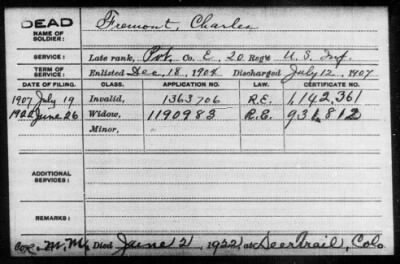 DEAD
NAME OF SOLDIER: Fremont, Charles
SERVICE: Late rank, Pvt. Co. E, 20 Reg't U.S. Inf.
TERM OF SERVICE: Enlisted Dec. 18, 1904 Discharged July 12, 1907
DATE OF FILING. CLASS. APPLICATION NO. LAW. CERTIFICATE NO.
1907 July 19 Invalid, 1363706 R.E. 1,142,361
1922 June 26 Widow, 1190983 R.E. 931,812
Minor,
ADDITIONAL SERVICES:
REMARKS:
M.M. Died June 21, 1922, at Deertrail, Colo